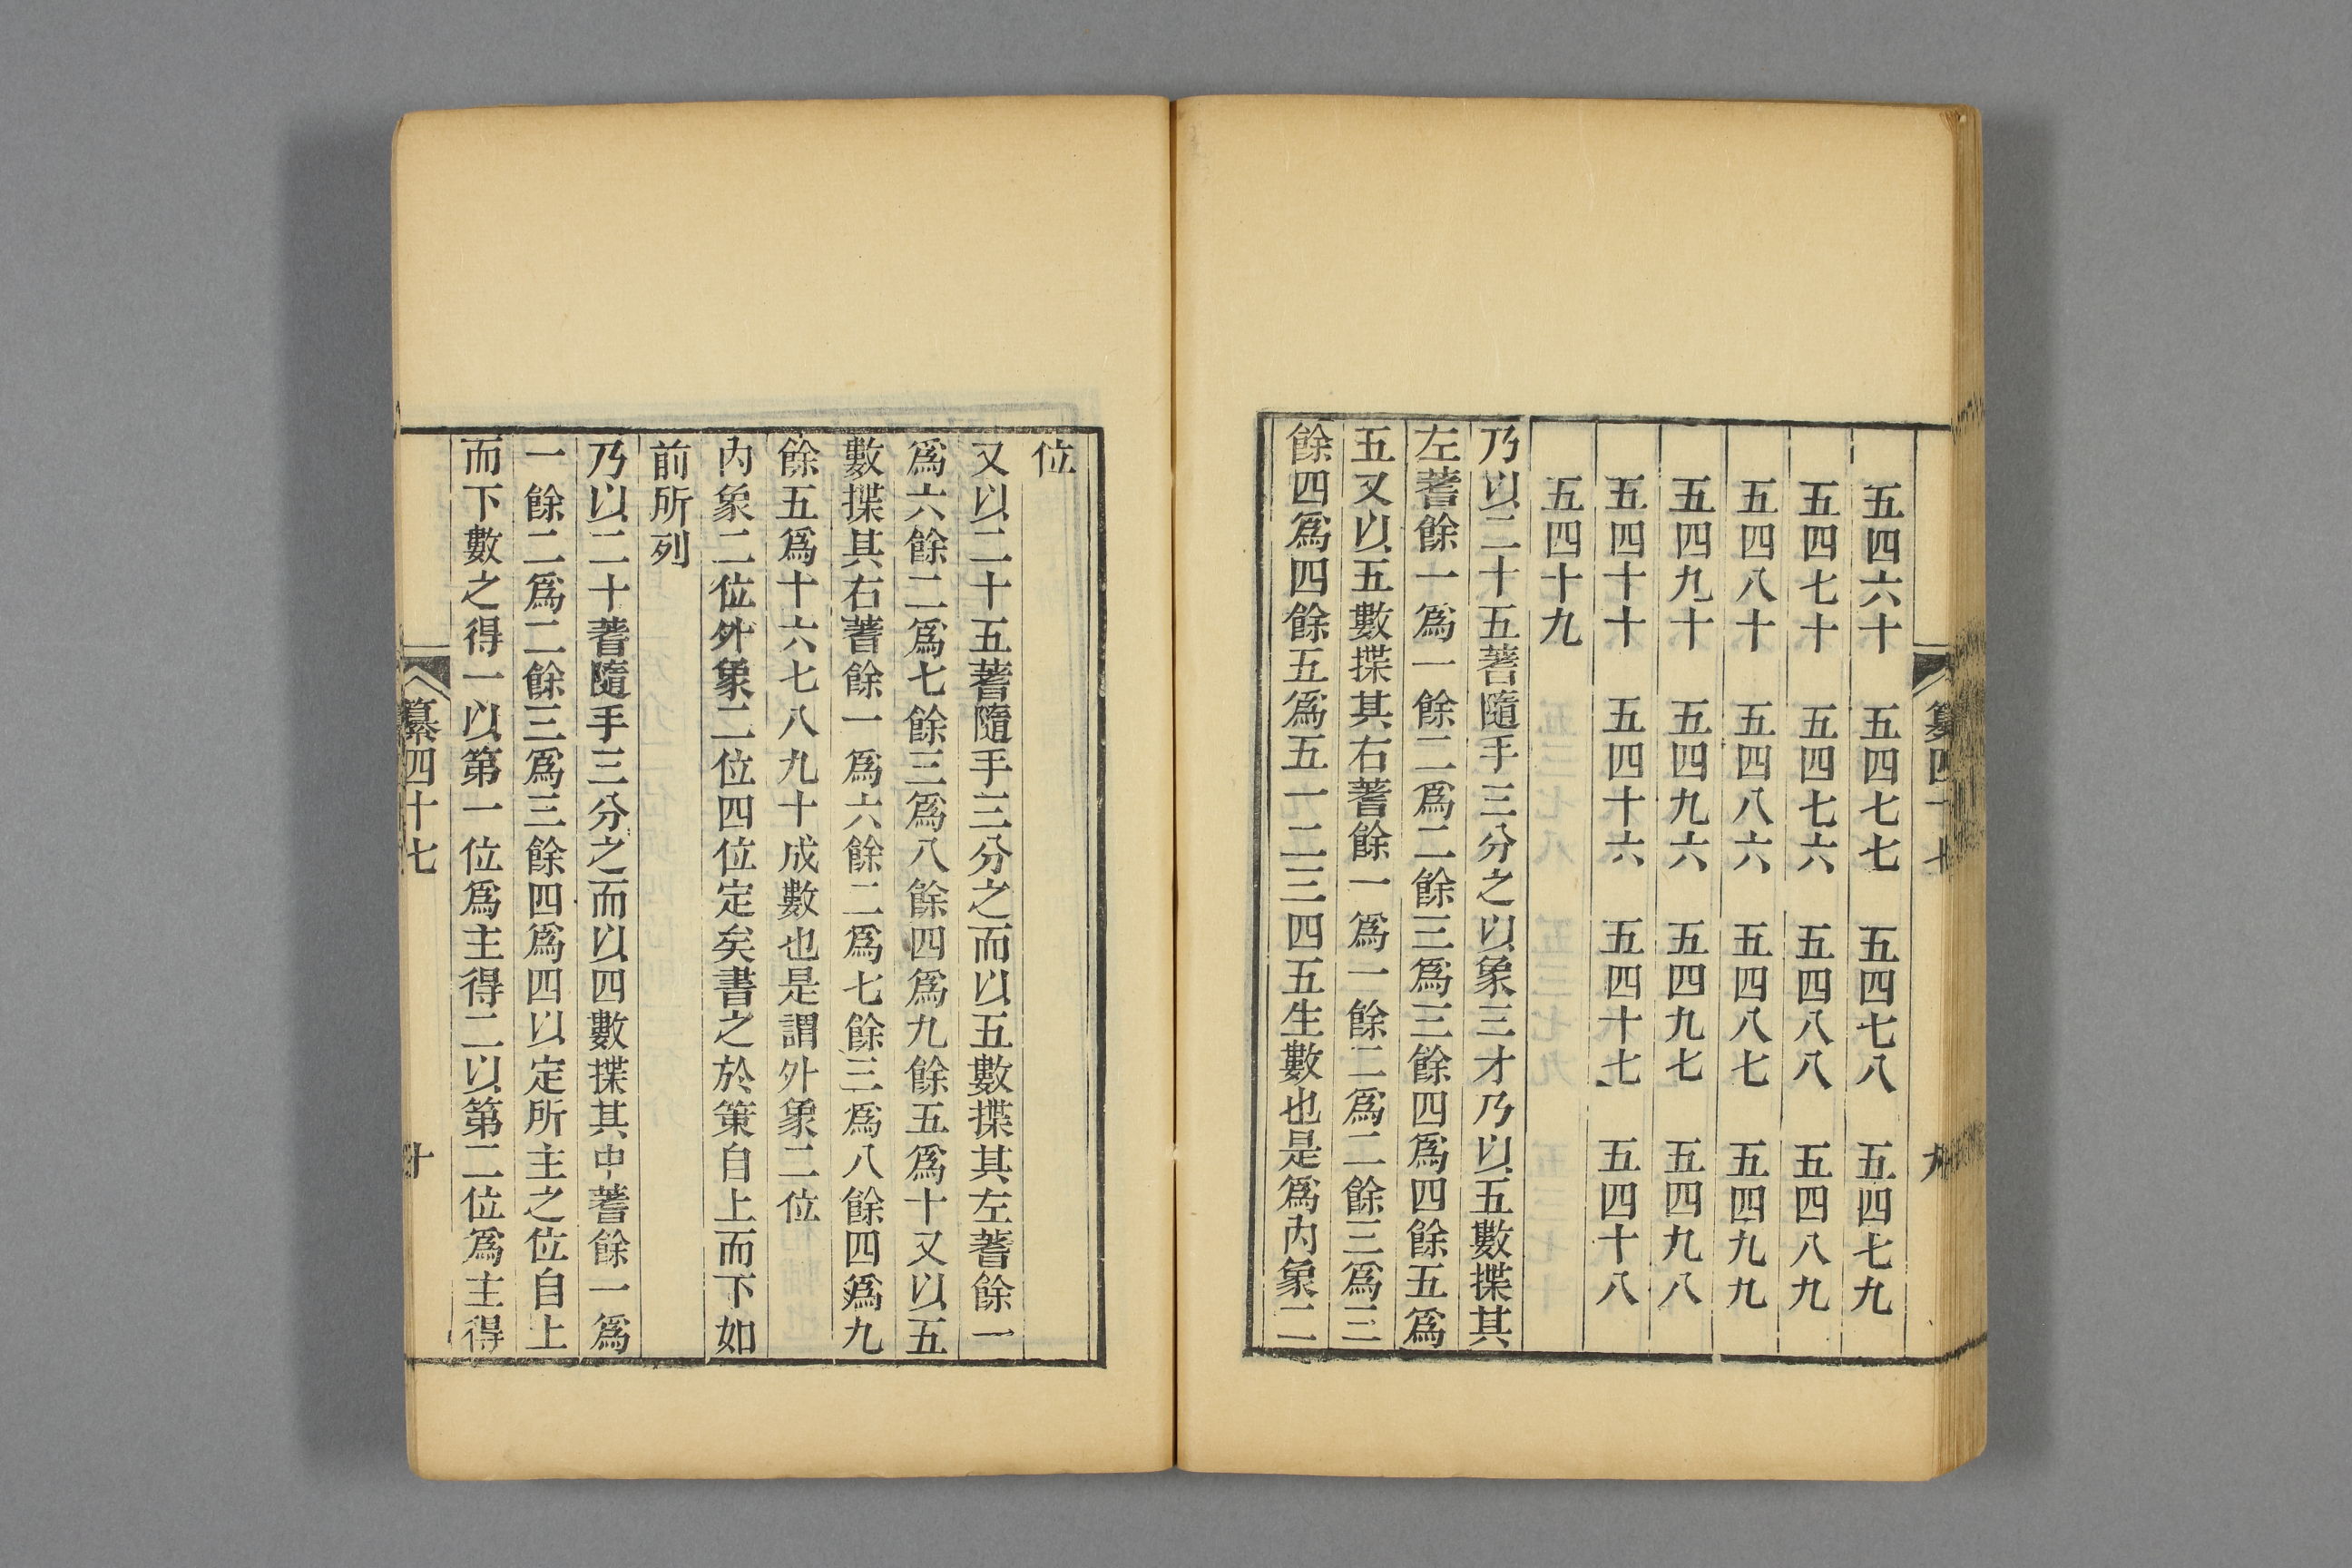 纂四十七
九
五四六十　五四七七　五四七八　五四七九
五四七十　五四七六　五四八八　五四八九
五四八十　五四八六　五四八七　五四九九
五四九十　五四九六　五四九七　五四九八
五四十十　五四十六　五四十七　五四十八
五四十九
乃以二十五蓍隨手三分之以象三才乃以五數揲其
左蓍餘一爲一餘二爲二餘三爲三餘四爲四餘五爲
五又以五數揲其右蓍餘一爲一餘二爲二餘三爲三
餘四爲四餘五爲五一二三四五生數也是爲內象二
位
又以二十五蓍隨手三分之而以五數揲其左蓍餘一
爲六餘二爲七餘三爲八餘四爲九餘五爲十又以五
數揲其右蓍餘一爲六餘二爲七餘三爲八餘四爲九
餘五爲十六七八九十成數也是謂外象二位
內象二位外象二位四位定矣書之於策自上而下如
前所列
乃以二十蓍隨手三分之而以四數揲其中蓍餘一爲
一餘二爲二餘三爲三餘四爲四以定所主之位自上
而下數之得一以第一位爲主得二以第二位爲主得
纂四十七
十